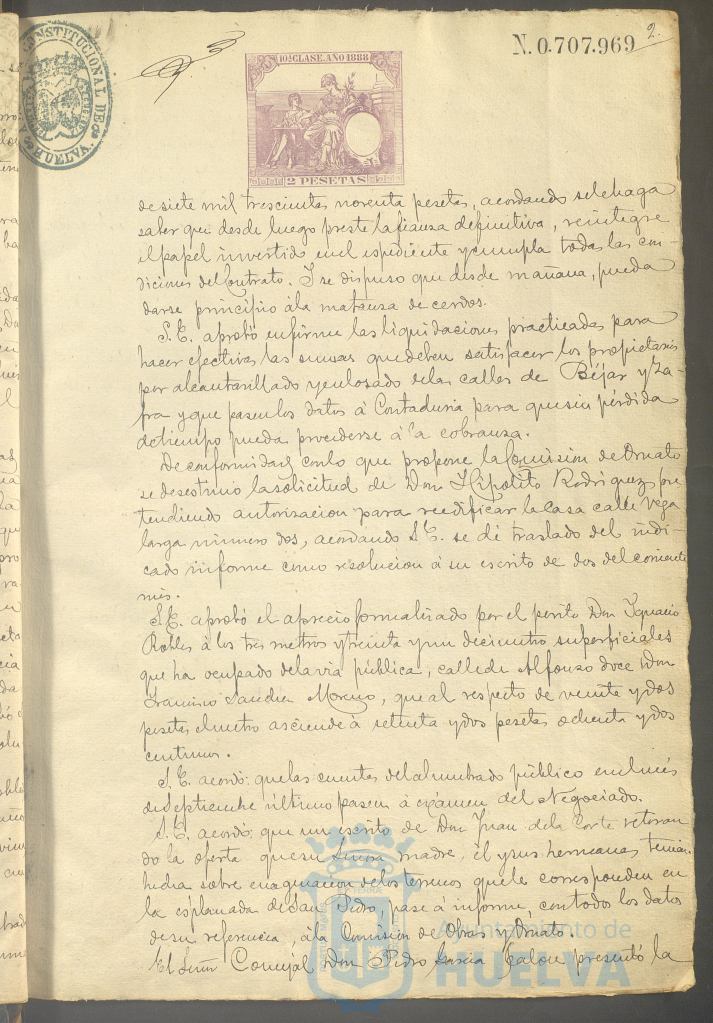 N. 0.707.969
2.
CONSTITUCIONAL DE
HUELVA
10ª CLASE. AÑO 1888
2 PESETAS
de siete mil trescientas noventa pesetas, acordando se le haga
saber que desde luego preste la fianza definitiva, reintegre
el papel invertido en el espediente y cumpla todas las con-
diciones del Contrato. Y se dispuso que desde mañana, pueda
darse principio á la matanza de cerdos.
S.E. aprobó en firme las liquidaciones practicadas para
hacer efectivas las sumas que deben satisfacer los propietarios
por alcantarillado y enlosado de las calles de Béjar y Za-
fra y que pasen los datos á Contaduria para que sin pérdida
de tiempo pueda procederse á la cobranza.
De conformidad con lo que propone la Comision de Ornato
se desestimó la solicitud de Don Hipólito Rodriguez pre
tendiendo autorizacion para reedificar la casa calle Vega
larga número dos, acordando S.E. se dé traslado del indi-
cado informe como resolucion á su escrito de dos del corriente
mes.
S.E. aprobó el aprecio formalizado por el perito Don Ignacio
Robles á los tres metros y treinta y un decimetro superficiales
que ha ocupado de la via pública, calle de Alfonso doce Don
Francisco Sanchez Moreno, que al respecto de veinte y dos
pesetas el metro asciende á setenta y dos pesetas ochenta y dos
centimos.
S.E. acordó: que las cuentas del alumbrado público en el mes
de Septiembre último pasen á exámen del Negociado.
S.E. acordó: que un escrito de Don Juan de la Corte retiran
do la oferta que su Señora madre, él y sus hermanas tenian
hecha sobre enagenacion de los terrenos que le corresponden en
la esplanada de San Pedro, pase á informe, con todos los datos
de su referencia, á la Comision de Obras y Ornato.
El Señor Concejal Don Pedro Garcia presentó la
Ayuntamiento de
HUELVA